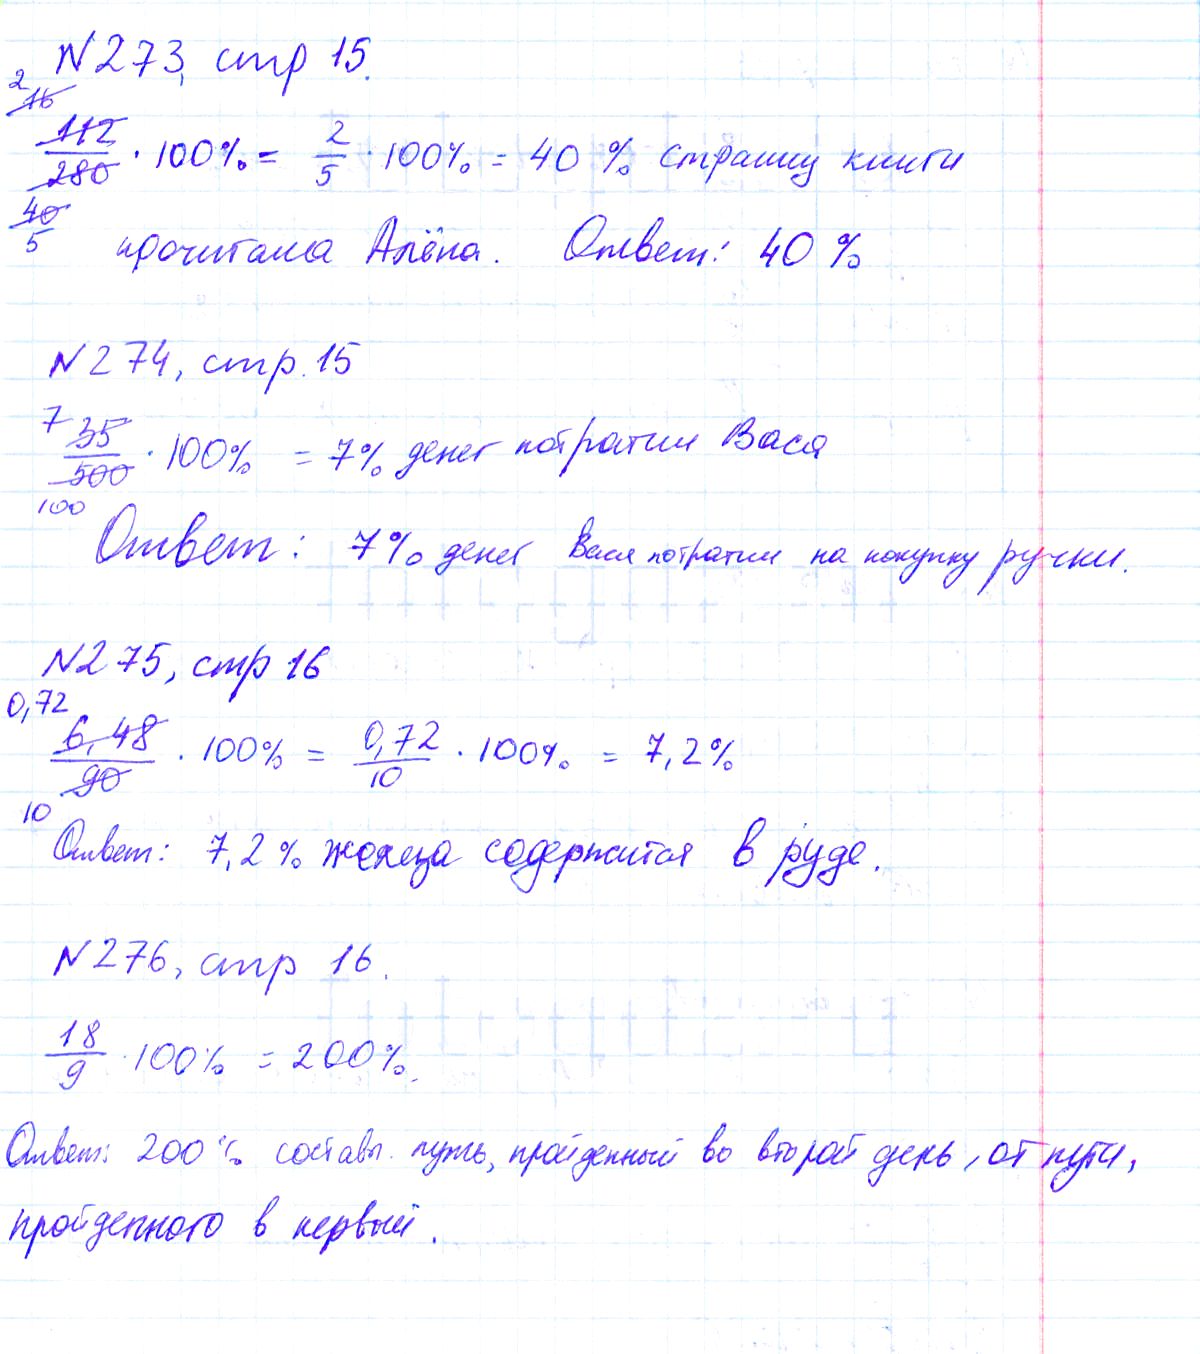 №273, стр 15.
2
16
112/280 · 100% = 2/5 · 100% = 40 % страниц книги
40
5
прочитала Алёна. Ответ: 40 %
№274, стр. 15
7
35/500 · 100% = 7% денег потратил Вася
100
Ответ: 7% денег Вася потратил на покупку ручки.
№275, стр 16
0,72
6,48/90 · 100% = 0,72/10 · 100% = 7,2%
10
Ответ: 7,2% железа содержится в руде.
№276, стр 16.
18/9 · 100% = 200%.
Ответ: 200% составл. путь, пройденный во второй день, от пути,
пройденного в первый.